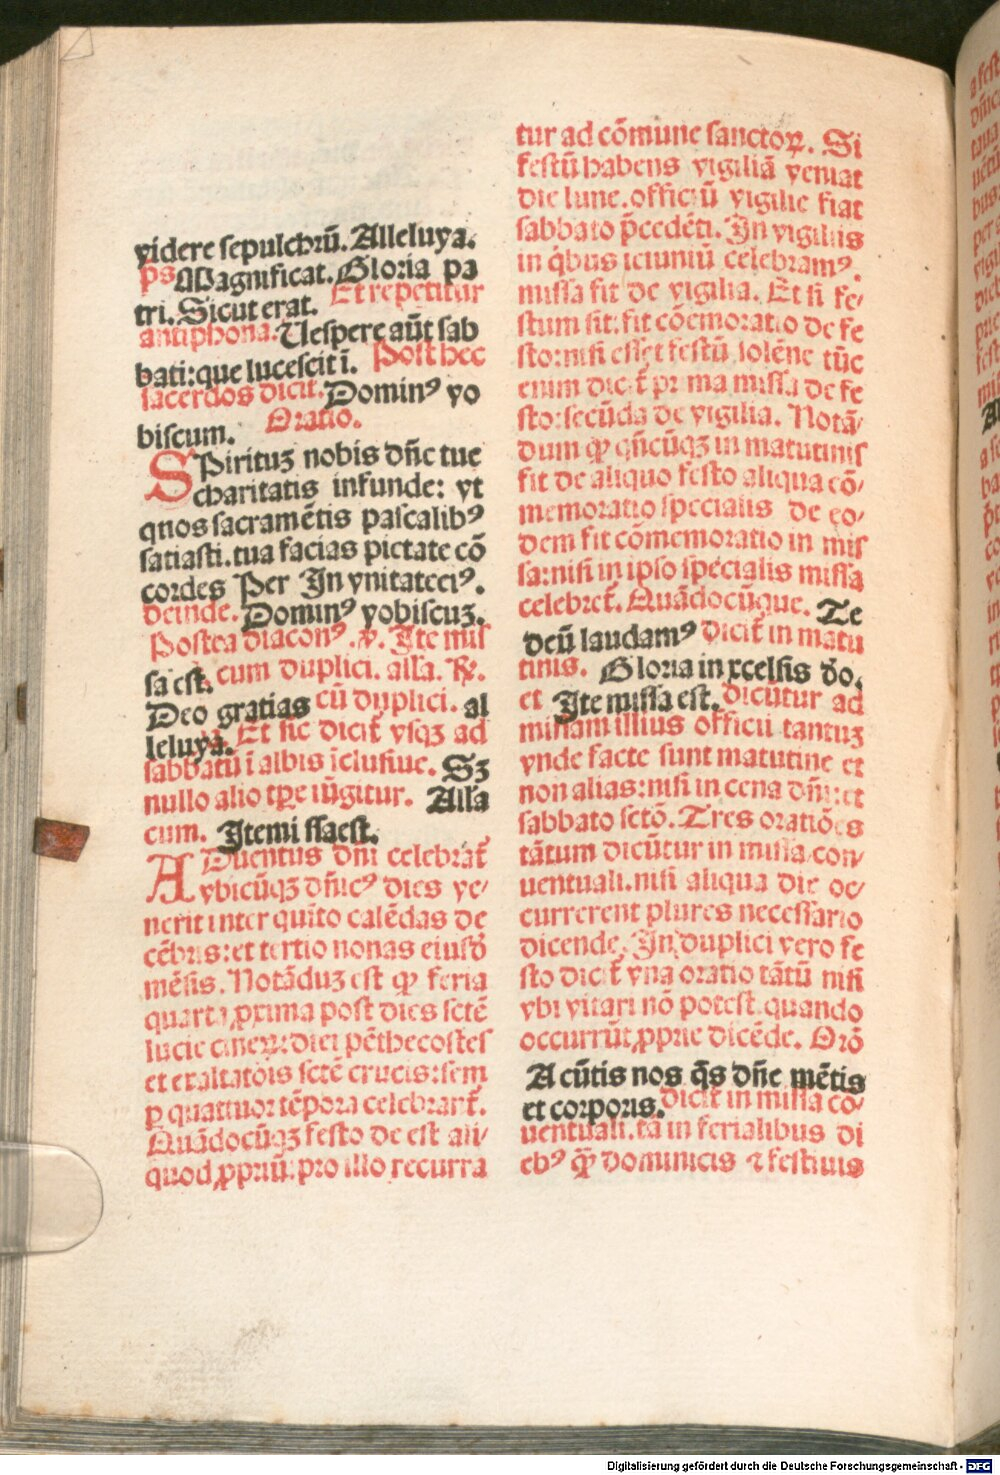 videre sepulchrū. Alleluya.
ps Magnificat. Gloria pa
tri. Sicut erat. Et repetitur
antiphona. Uespere aūt sab
bati: que lucescit ī. Post hec
sacerdos dicit. Dominꝰ vo
biscum. Oratio.
SPirituʒ nobis dñe tue
charitatis infunde: vt
quos sacramētis pascalibꝰ
satiasti. tua facias pietate cō
cordes Per In vnitate eiꝰ.
deinde. Dominꝰ vobiscuʒ.
Postea diaconꝰ. v. Ite mis
sa est. cum duplici. alla. ℟.
Deo gratias cū duplici. al
leluya. Et sic dicit̄ vsqʒ ad
sabbatū ī albis īclusiue. Sʒ
nullo alio tꝑe iūgitur. Alla
cum. Itemi ssaest.
ADuentus dñi celebrat̄
vbicūqʒ dñicꝰ dies ve/
nerit inter quīto calēdas de
cēbris: et tertio nonas eiusdē
mēsis. Notāduʒ est ꝙ feria
quarta ꝓxima post dies sctē
lucie cineꝝ: diei pēthecostes
et exaltatōis sctē crucis: sem
ꝑ quattuor tēpora celebrant̄.
Quādocūqʒ festo de est ali/
quod ꝓpriū: pro illo recurra
tur ad cōmune sanctoꝝ. Si
festū habens vigiliā veniat
die lune. officiū vigilie fiat
sabbato p̄cedēti. In vigiliis
in q̇bus ieiuniū celebramꝰ.
missa fit de vigilia. Et si fe/
stum sit: fit cōēmoratio de fe
sto: nisi esset festū solēne tūc
enim dic̄t̄ prima missa de fe
sto: secūda de vigilia. Notā/
dum ꝙ qñcūqʒ in matutinis
fit de aliquo festo aliqua cō/
memoratio specialis de eo/
dem fit cōmemoratio in mis
sa: nisi in ipso specialis missa
celebret̄. Quādocūque. Te
deū laudamꝰ dicit̄ in matu
tinis. Gloria in xcelsis do.
et Ite missa est. dicūtur ad
missam illius officii tantuʒ
vnde facte sunt matutine et
non alias: nisi in cena dñi: et
sabbato sctō. Tres oratiōes
tātum dicūtur in missa con/
uentuali. nisi aliqua die oc/
currerent plures necessario
dicende. In duplici vero fe
sto dicit̄ vna oratio tātū nisi
vbi vitari nō potest. quando
occurrūt ꝓprie dicēde. Orō
A cūtis nos q̄s dñe mētis
et corporis. dicit̄ in missa co/
uentuali. tā in ferialibus di
ebꝰ ꝙ̄ dominicis ⁊ festiuis
Digitalisierung gefördert durch die Deutsche Forschungsgemeinschaft - DFG